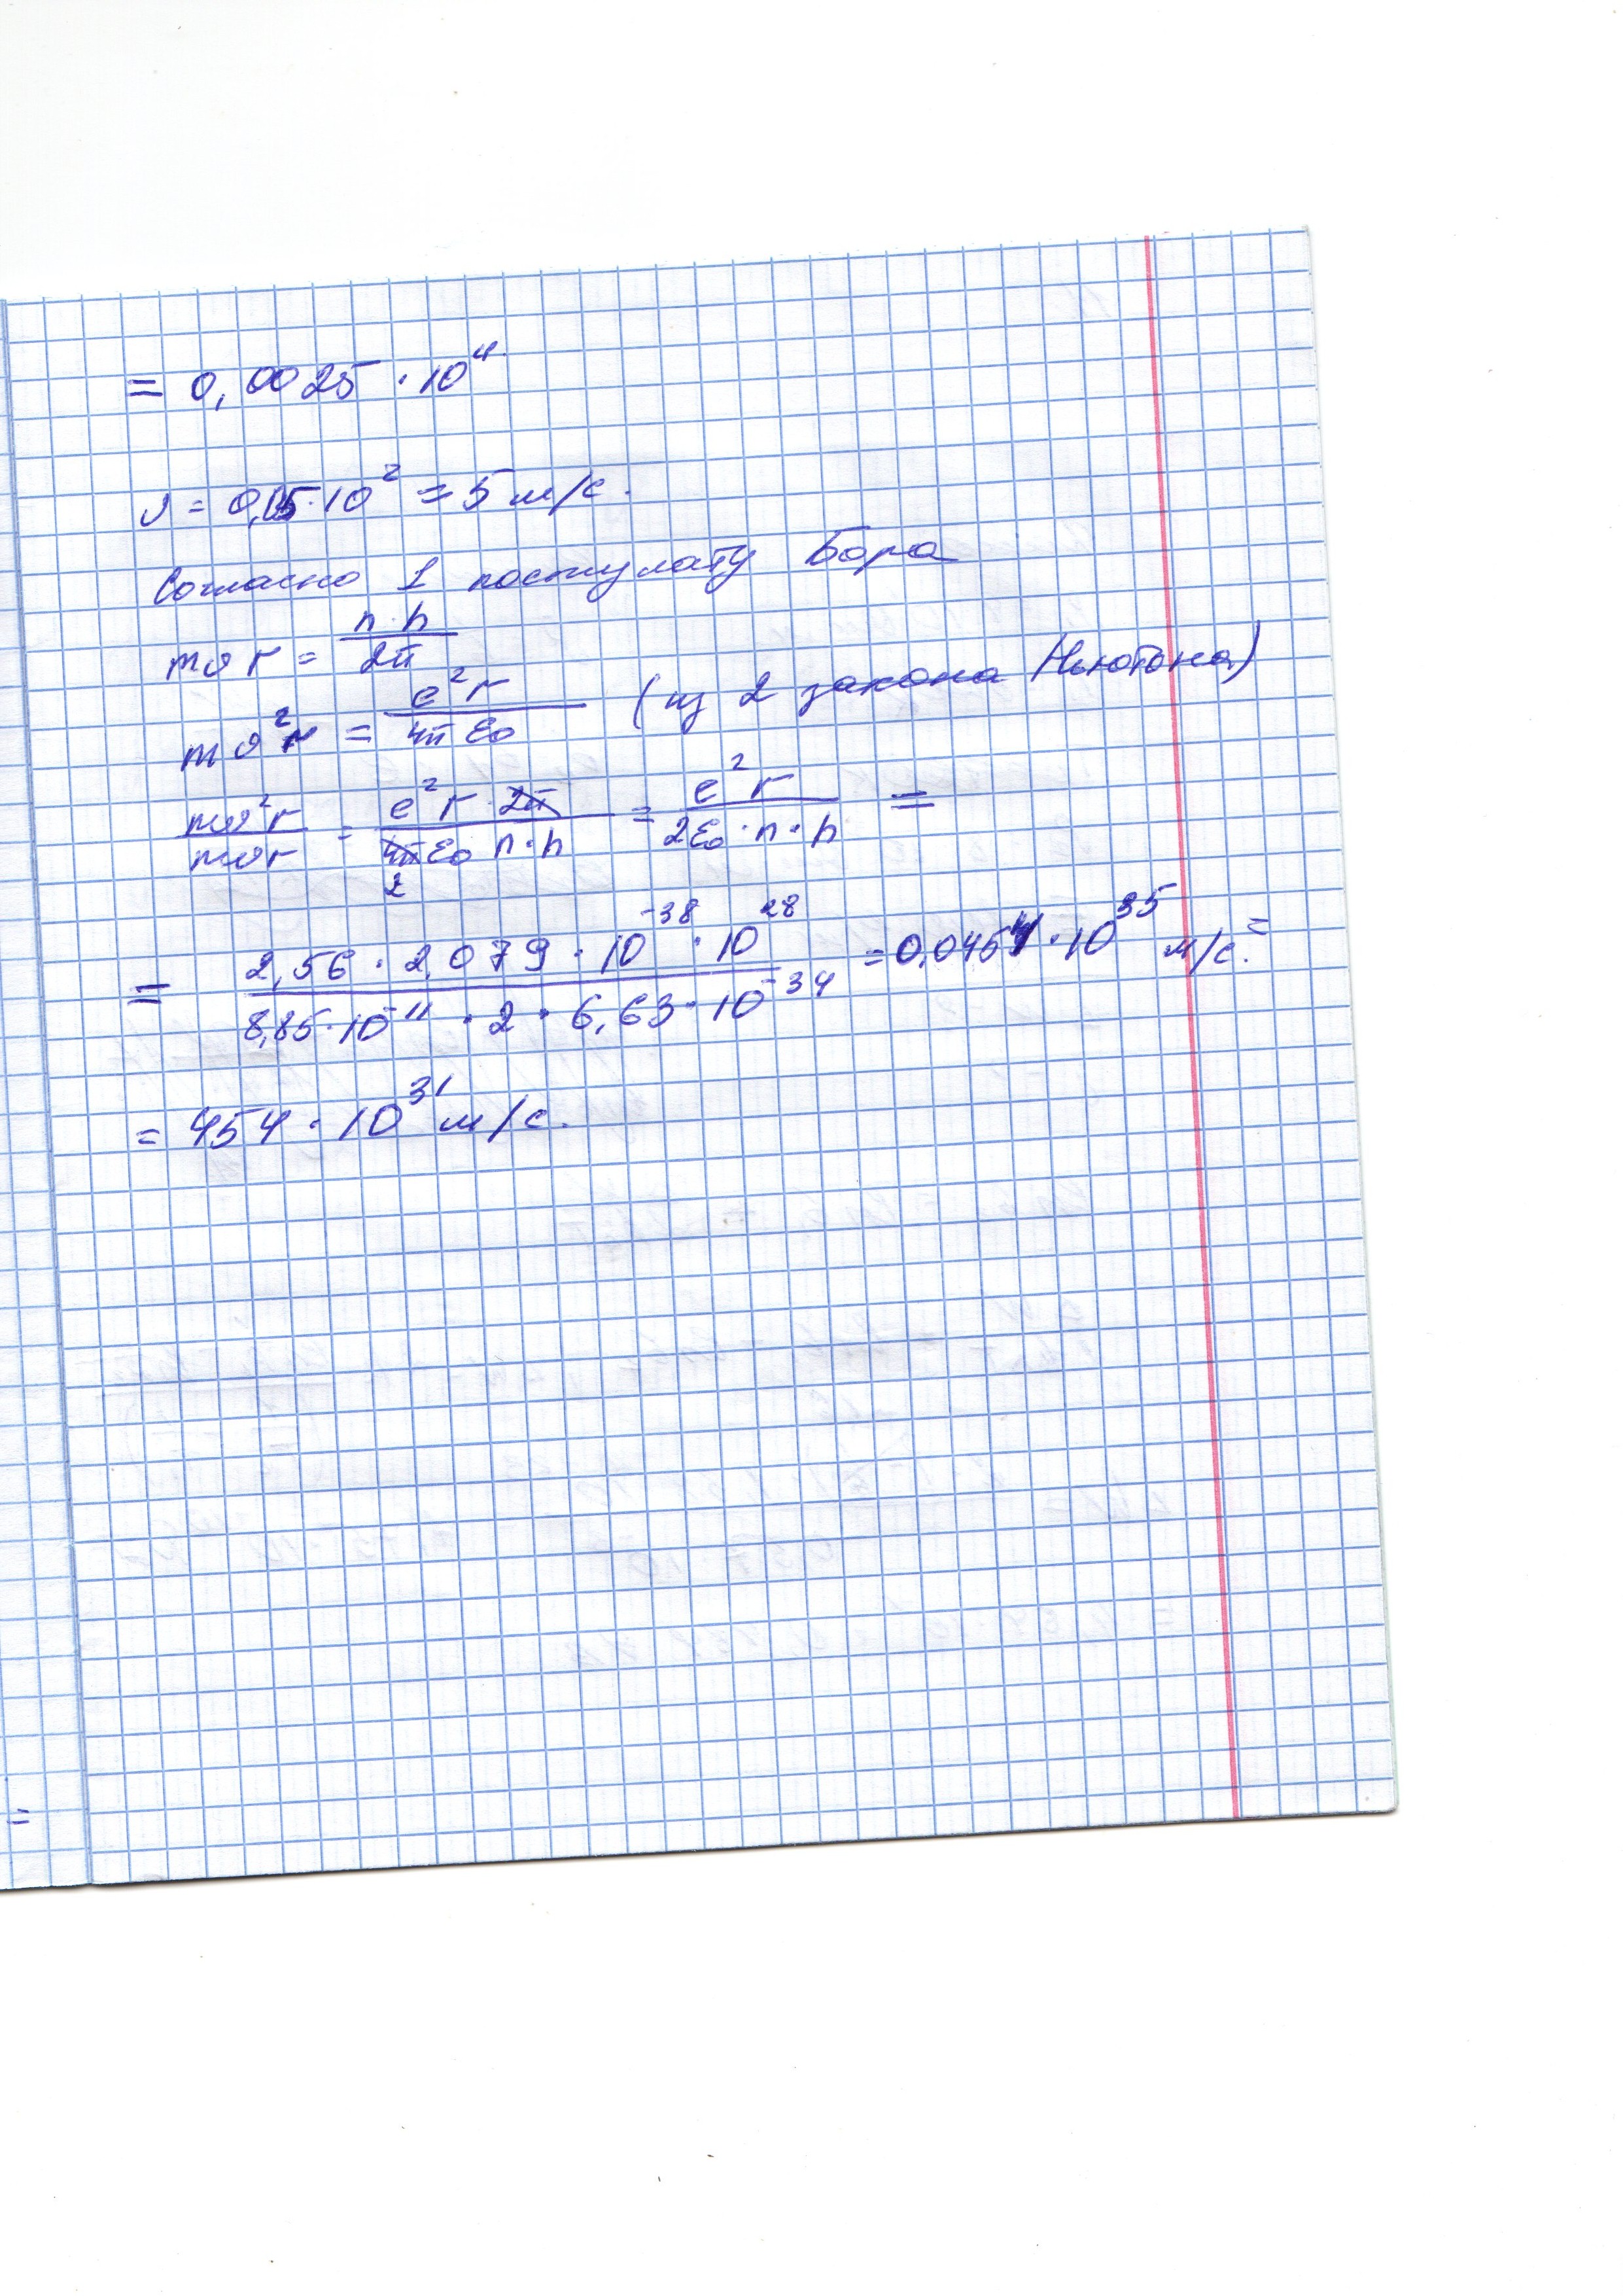 = 0,0025 · 10⁴
υ = 0,05 · 10² = 5 м/с.
Согласно 1 постулату Бора
mυr = n·h / 2π
mυ²r = e²r / 4πε₀ (из 2 закона Ньютона)
mυ²r / mυr = e²r·2π / 4πε₀ n·h 2 = e²r / 2ε₀·n·h =
= 2,56 · 2,079 · 10⁻³⁸ · 10²⁸ / 8,85·10⁻¹¹ · 2 · 6,63·10⁻³⁴ = 0,0454 · 10³⁵ м/с. =
= 454 · 10³¹ м/с.
=